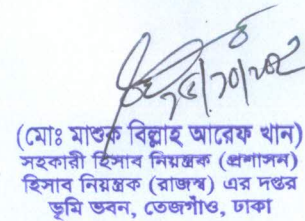 (মোঃ মাশুক বিল্লাহ আরেফ খান)
সহকারী হিসাব নিয়ন্ত্রক (প্রশাসন)
হিসাব নিয়ন্ত্রক (রাজস্ব) এর দপ্তর
ভূমি ভবন, তেজগাঁও, ঢাকা